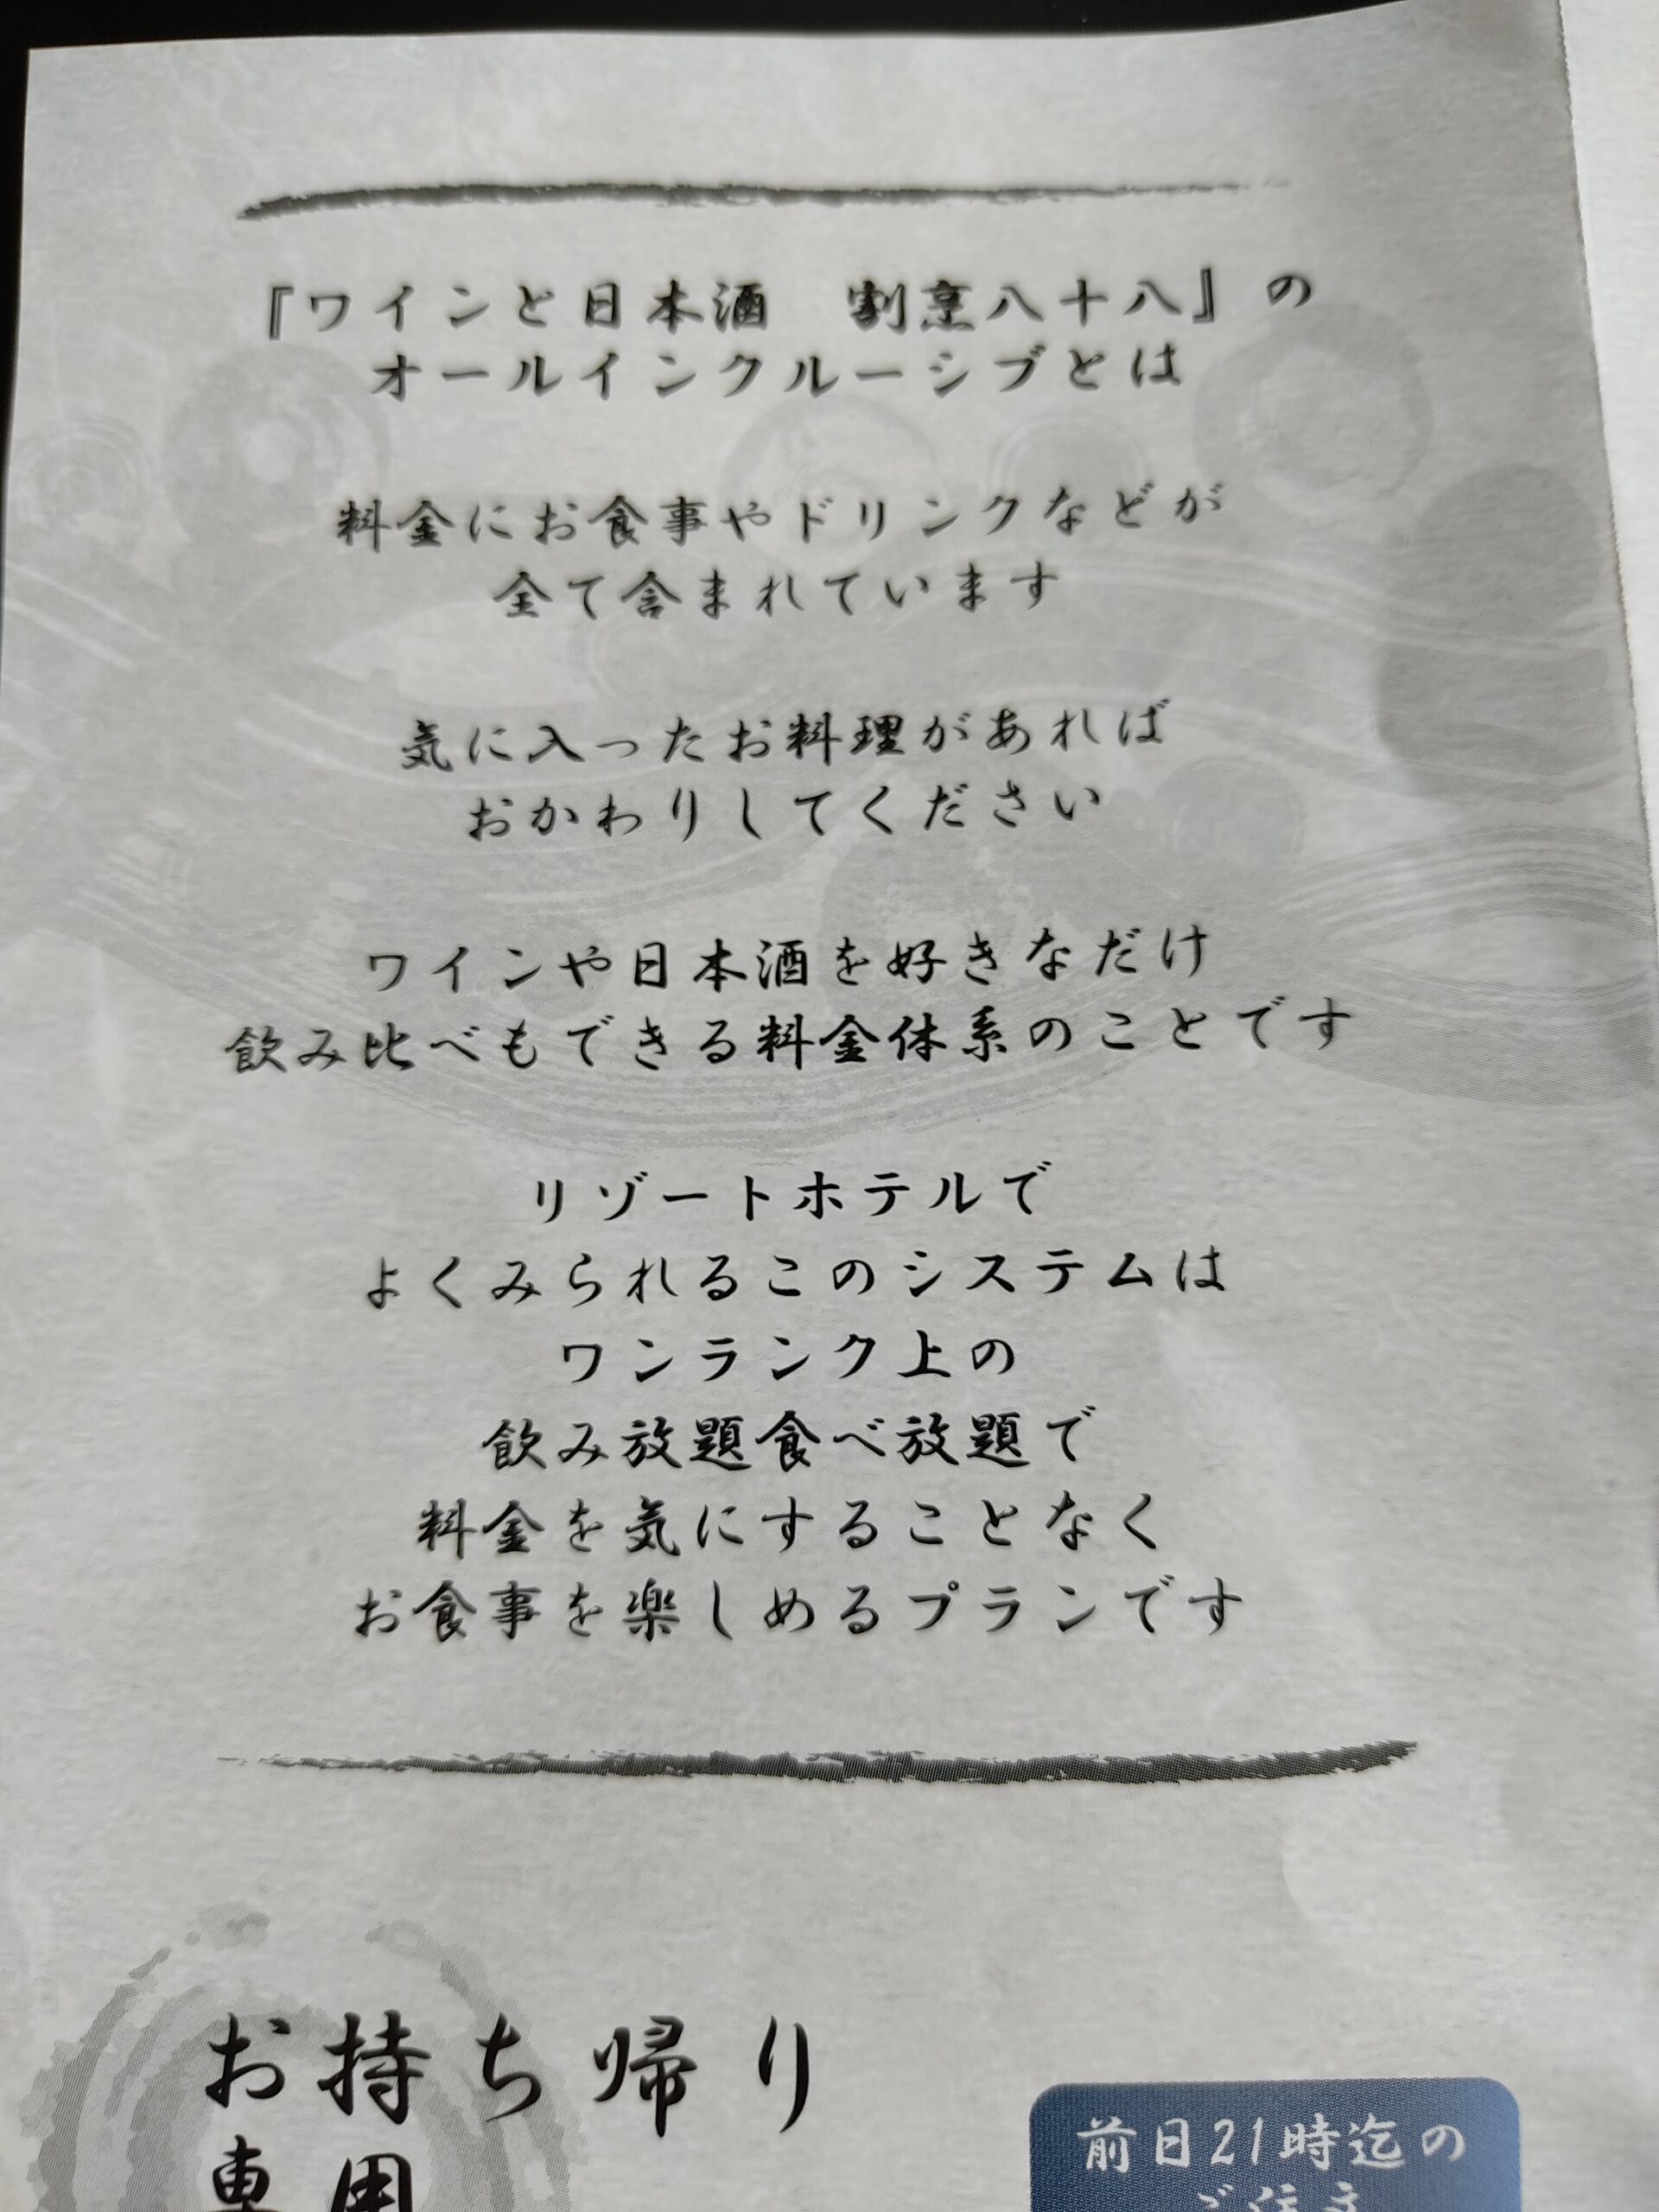 『ワインと日本酒　割烹八十八』の
オールインクルーシブとは
料金にお食事やドリンクなどが
全て含まれています
気に入ったお料理があれば
おかわりしてください
ワインや日本酒を好きなだけ
飲み比べもできる料金体系のことです
リゾートホテルで
よくみられるこのシステムは
ワンランク上の
飲み放題食べ放題で
料金を気にすることなく
お食事を楽しめるプランです
お持ち帰り
専用
前日21時迄の